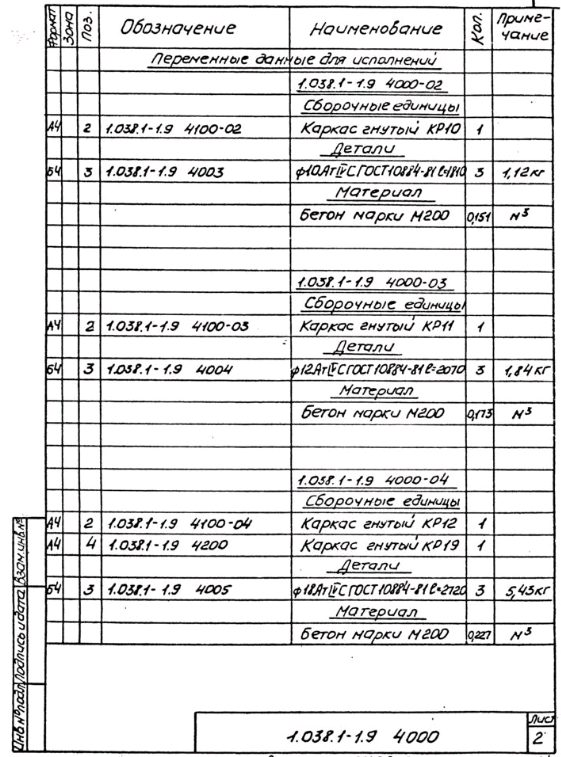 Формат Зона Поз. Обозначение Наименование Кол. Приме-чание
Переменные данные для исполнений
1.038.1-1.9 4000-02
Сборочные единицы
А4 2 1.038.1-1.9 4100-02 Каркас гнутый КР10 1
Детали
Б4 3 1.038.1-1.9 4003 ф10АтIVС ГОСТ10884-81 ℓ=1810 3 1,12кг
Материал
Бетон марки М200 0,151 м³
1.038.1-1.9 4000-03
Сборочные единицы
А4 2 1.038.1-1.9 4100-03 Каркас гнутый КР11 1
Детали
Б4 3 1.038.1-1.9 4004 ф12АтIVС ГОСТ10884-81 ℓ=2070 3 1,84кг
Материал
Бетон марки М200 0,173 м³
1.038.1-1.9 4000-04
Сборочные единицы
А4 2 1.038.1-1.9 4100-04 Каркас гнутый КР12 1
А4 4 1.038.1-1.9 4200 Каркас гнутый КР19 1
Детали
Б4 3 1.038.1-1.9 4005 ф18АтIVС ГОСТ10884-81 ℓ=2720 3 5,45кг
Материал
Бетон марки М200 0,227 м³
Инв.№подл. Подпись и дата Взам.инв.№
1.038.1-1.9 4000
Лист
2